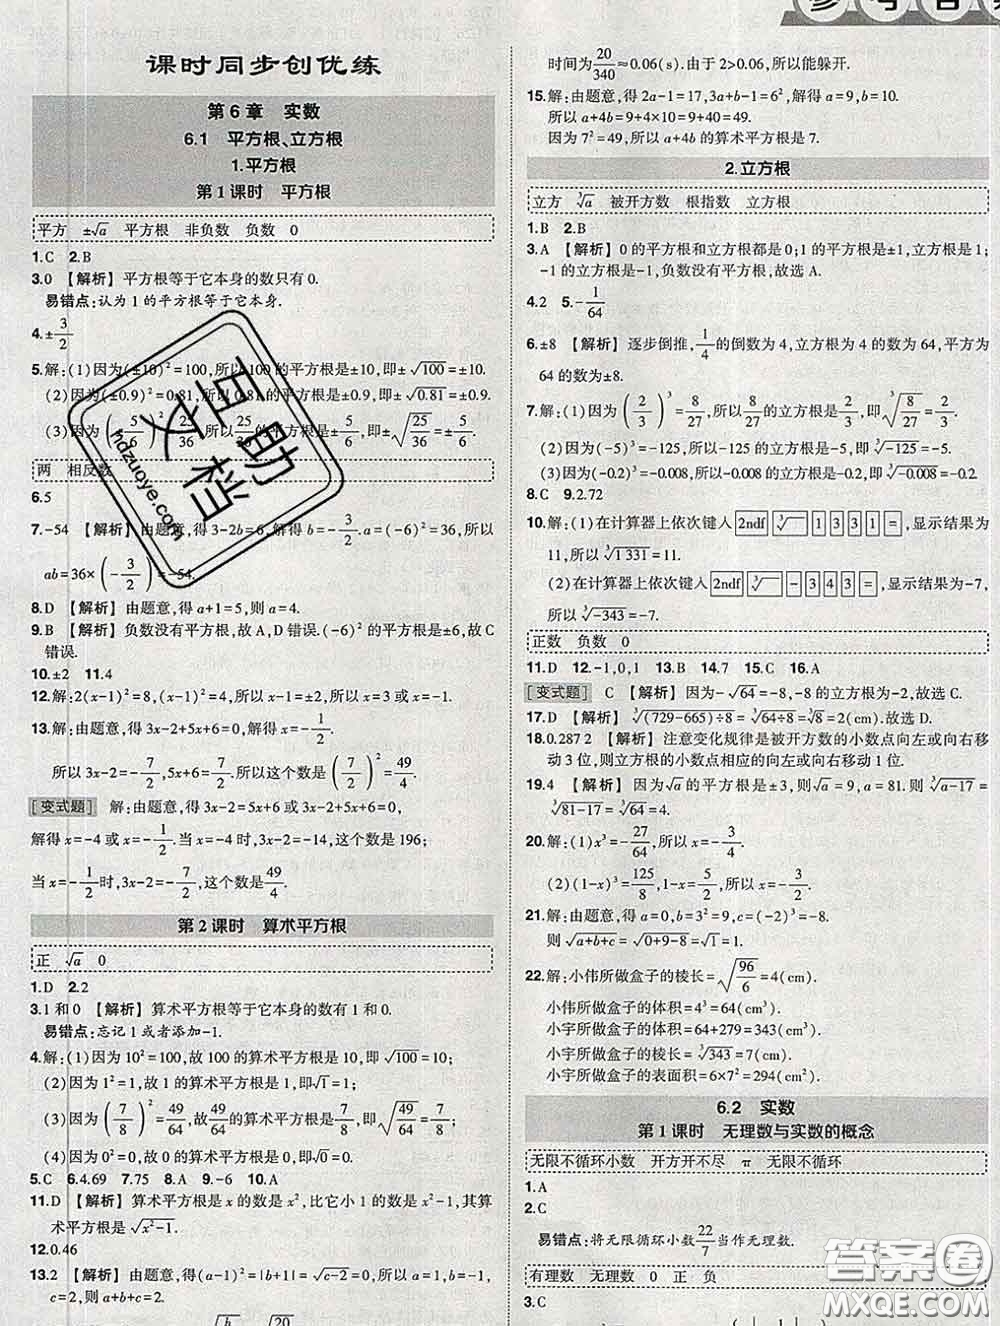 课时同步创优练
第6章 实数
6.1 平方根、立方根
1.平方根
第1课时 平方根
平方 ±√a 平方根 非负数 负数 0
1.C 2.B
3.0 【解析】平方根等于它本身的数只有0.
易错点:认为1的平方根等于它本身.
4.±3/2
5.解:(1)因为(±10)²=100,所以100的平方根是±10,即±√100=±10.
(2)因为(±0.9)²=0.81,所以0.81的平方根是±0.9,即±√0.81=±0.9.
(3)因为(±5/6)²=25/36,所以25/36的平方根是±5/6,即±√(25/36)=±5/6.
两 相反数
6.5
7.-54 【解析】由题意,得3-2b=6,解得b=-3/2.a=(-6)²=36,所以
ab=36×(-3/2)=-54.
8.D 【解析】由题意,得a+1=5,则a=4.
9.B 【解析】负数没有平方根,故A,D错误.(-6)²的平方根是±6,故C
错误.
10.±2 11.4
12.解:2(x-1)²=8,(x-1)²=4,所以x-1=±2,所以x=3或x=-1.
13.解:由题意,得3x-2+5x+6=0,解得x=-1/2,
所以3x-2=-7/2,5x+6=7/2,所以这个数是(7/2)²=49/4.
[变式题] 解:由题意,得3x-2=5x+6或3x-2+5x+6=0,
解得x=-4或x=-1/2.当x=-4时,3x-2=-14,这个数是196;
当x=-1/2时,3x-2=-7/2,这个数是49/4.
第2课时 算术平方根
正 √a 0
1.D 2.2
3.1和0 【解析】算术平方根等于它本身的数有1和0.
易错点:忘记1或者添加-1.
4.解:(1)因为10²=100,故100的算术平方根是10,即√100=10;
(2)因为1²=1,故1的算术平方根是1,即√1=1;
(3)因为(7/8)²=49/64,故49/64的算术平方根是7/8,即√(49/64)=7/8;
(4)因为0²=0,故0的算术平方根是0,即√0=0.
5.C 6.4.69 7.75 8.A 9.-6 10.A
11.D 【解析】算术平方根是x的数是x²,比它小1的数是x²-1,其算
术平方根是√(x²-1).
12.0.46
13.2 【解析】由题意,得(a-1)²=|b+1|=√(c-2)=0,所以a=1,b=-1,
c=2,所以a+b+c=1-1+2=2.
时间为20/340≈0.06(s).由于2>0.06,所以能躲开.
15.解:由题意,得2a-1=17,3a+b-1=6²,解得a=9,b=10.
所以a+4b=9+4×10=9+40=49.
因为7²=49,所以a+4b的算术平方根是7.
2.立方根
立方 ³√a 被开方数 根指数 立方根
1.B 2.B
3.A 【解析】0的平方根和立方根都是0;1的平方根是±1,立方根是1;
-1的立方根是-1,负数没有平方根,故选A.
4.2 5.-1/64
6.±8 【解析】逐步倒推,1/4的倒数为4,立方根为4的数为64,平方为
64的数为±8.
7.解:(1)因为(2/3)³=8/27,所以8/27的立方根是2/3,即³√(8/27)=2/3.
(2)因为(-5)³=-125,所以-125的立方根是-5,即³√-125=-5.
(3)因为(-0.2)³=-0.008,所以-0.008的立方根是-0.2,即³√-0.008=-0.2.
8.C 9.2.72
10.解:(1)在计算器上依次键入 2ndf ³√ 1 3 3 1 =,显示结果为
11,所以³√1 331=11.
(2)在计算器上依次键入 2ndf ³√ - 3 4 3 =,显示结果为-7,
所以³√-343=-7.
正数 负数 0
11.D 12.-1,0,1 13.B 14.7 15.C 16.A
[变式题] C 【解析】因为-√64=-8,-8的立方根为-2,故选C.
17.D 【解析】³√((729-665)÷8)=³√(64÷8)=³√8=2(cm).故选D.
18.0.287 2 【解析】注意变化规律是被开方数的小数点向左或向右移
动3位,则立方根的小数点相应的向左或向右移动1位.
19.4 【解析】因为√a的平方根是±3,则√a=9,a=81.所以³√(a-17)=
³√(81-17)=³√64=4.
20.解:(1)x³=-27/64,所以x=-3/4.
(2)(1-x)³=125/8,1-x=5/2,所以x=-3/2.
21.解:由题意,得a=0,b=3²=9,c=(-2)³=-8.
则√(a+b+c)=√(0+9-8)=√1=1.
22.解:小伟所做盒子的棱长=√(96/6)=4(cm).
小伟所做盒子的体积=4³=64(cm³).
小宇所做盒子的体积=64+279=343(cm³).
小宇所做盒子的棱长=³√343=7(cm).
小宇所做盒子的表面积=6×7²=294(cm²).
6.2 实数
第1课时 无理数与实数的概念
无限不循环小数 开方开不尽 π 无限不循环
1.A
2.C
易错点:将无限循环小数22/7当作无理数.
有理数 无理数 0 正 负
3.C
互助文档
hdzuoye.com
答案圈
MXQE.COM